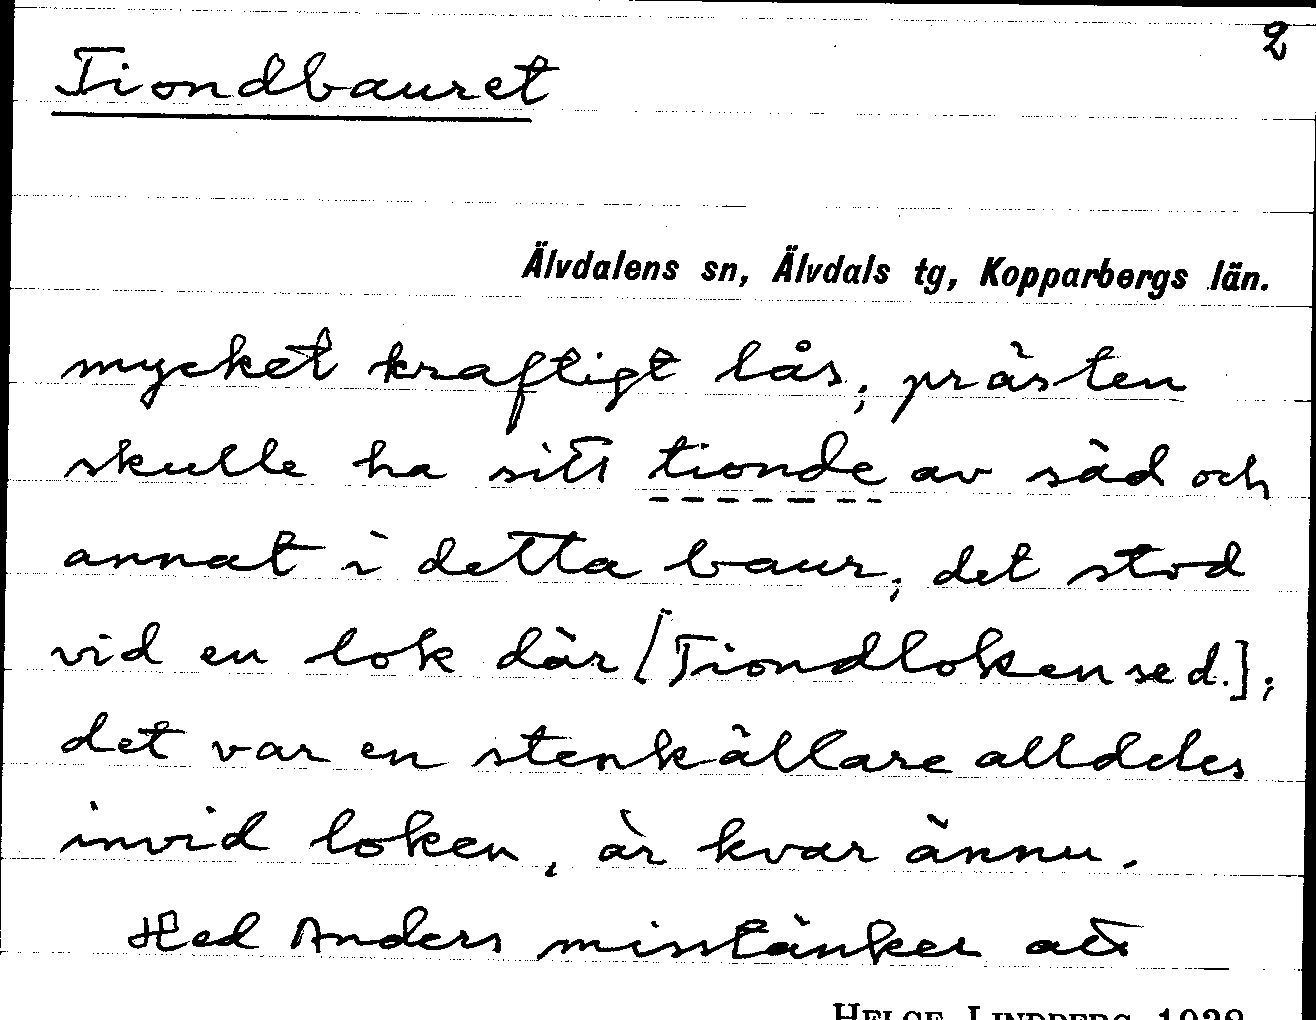 2
Tiondbauret
Älvdalens sn, Älvdals tg, Kopparbergs län.
mycket kraftigt lås; prästen
skulle ha sitt tionde av säd och
annat i detta baur; det stod
vid en lok där [Tiondloken se d.];
det var en stenkällare alldeles
invid loken, är kvar ännu.
Hed Anders misstänker att
HELGE LINDBERG 1938